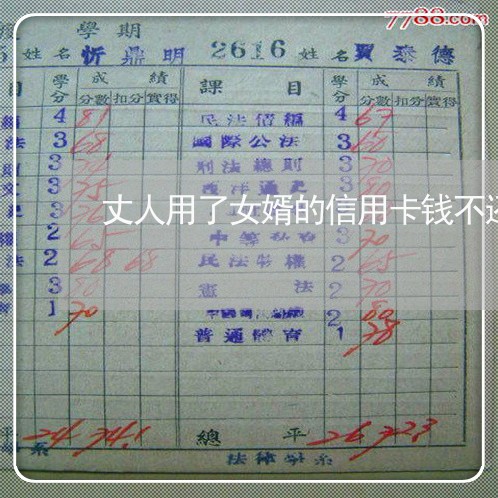 7788.com
學期
姓名 忻鼎明 2616 姓名 賈泰德
目 學分 成績 課目 學分 成績
分數 扣分 實得 分數 扣分 實得
4 81 民法債編 4 67
法 3 68 國際公法 3 60
3 刑法總則 3 70
3 75 西洋通史 3 80
丈人用了女婿的信用卡钱不还
2 65 3 70
法 2 68 68 民法物權 2 65
3 80 憲法 2 70
1 70 2 80
普通體育 1 78
平 24 74.1 總平 26 72.3
系 法律學系